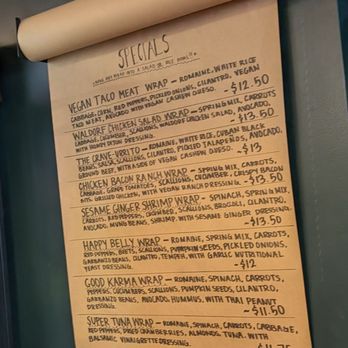 SPECIALS
MAKE ANY WRAP INTO A SALAD OR RICE BOWL!!
VEGAN TACO MEAT WRAP - ROMAINE, WHITE RICE
CABBAGE, CORN, RED PEPPERS, PICKLED ONIONS, CILANTRO, VEGAN
TACO MEAT, AVOCADO WITH VEGAN CASHEW QUESO. -$12.50
WALDORF CHICKEN SALAD WRAP - SPRING MIX, CARROTS
CABBAGE, CUCUMBER, SCALLIONS, WALDORF CHICKEN SALAD, AVOCADO,
WITH HONEY DIJON DRESSING. -$13.50
THE CRAVE-URRITO - ROMAINE, WHITE RICE, CUBAN BLACK
BEANS, SALSA, SCALLIONS, CILANTRO, PICKLED JALAPEÑOS, AVOCADO,
GROUND BEEF, WITH A SIDE OF VEGAN CASHEW QUESO. -$13
CHICKEN BACON RANCH WRAP - SPRING MIX, CARROTS,
CABBAGE, GRAPE TOMATOES, SCALLIONS, CUCUMBER, CRISPY BACON
BITS, GRILLED CHICKEN, WITH VEGAN RANCH DRESSING. -$13.50
SESAME GINGER SHRIMP WRAP - SPINACH, SPRING MIX,
CARROTS, RED PEPPERS, CUCUMBER, SCALLIONS, BROCCOLI, CILANTRO,
AVOCADO, MUNG BEANS, SHRIMP, WITH SESAME GINGER DRESSING.
-$13.50
HAPPY BELLY WRAP - ROMAINE, SPRING MIX, CARROTS,
RED PEPPERS, BEETS, SCALLIONS, PUMPKIN SEEDS, PICKLED ONIONS,
GARBANZO BEANS, CILANTRO, TEMPEH, WITH GARLIC NUTRITIONAL
YEAST DRESSING. -$12
GOOD KARMA WRAP - ROMAINE, SPINACH, CARROTS,
PEPPERS, CUCUMBERS, SCALLIONS, PUMPKIN SEEDS, CILANTRO,
GARBANZO BEANS, AVOCADO, HUMMUS, WITH THAI PEANUT
DRESSING. -$11.50
SUPER TUNA WRAP - ROMAINE, SPINACH, CARROTS, CABBAGE,
RED PEPPERS, DRIED CRANBERRIES, ALMONDS, TUNA, WITH
BALSAMIC VINAIGRETTE DRESSING. -$11.75